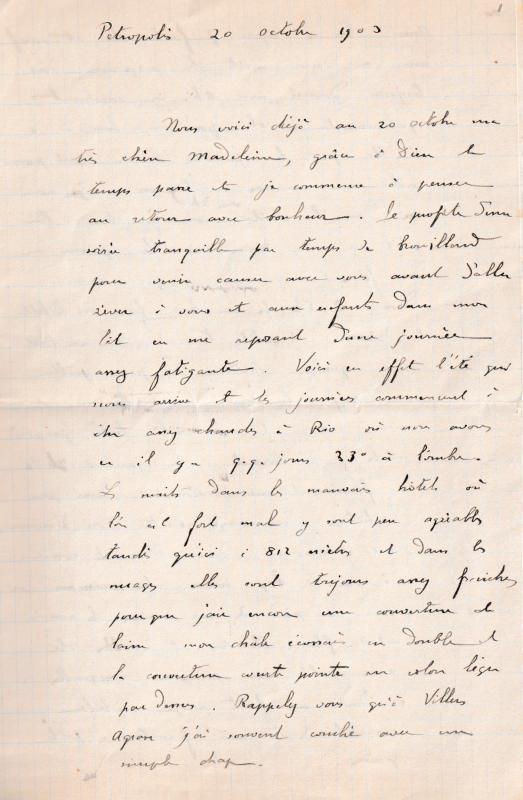 1
Petropolis 20 octobre 1903
Nous voici déjà au 20 octobre ma
très chère Madeleine, grâce à Dieu le
temps passe et je commence à penser
au retour avec bonheur. Je profite d'une
soirée tranquille par temps de brouillard
pour venir causer avec vous avant d'aller
rêver à vous et aux enfants dans mon
lit en me reposant d'une journée
assez fatigante. Voici en effet l'été qui
nous arrive et les journées commencent à
être assez chaudes à Rio où nous avons
eu il y a q.q. jours 33° à l'ombre.
Les nuits dans les mauvais hôtels où
l'on est fort mal y sont peu agréables
tandis qu'ici à 812 mètres et dans les
nuages elles sont toujours assez fraiches
pour que j'aie encore une couverture de
laine mon châle écossais en double et
la couverture courte pointe en coton léger
par dessus. Rappelez vous qu'à Villers
Agron j'ai souvent couché avec un
simple drap.